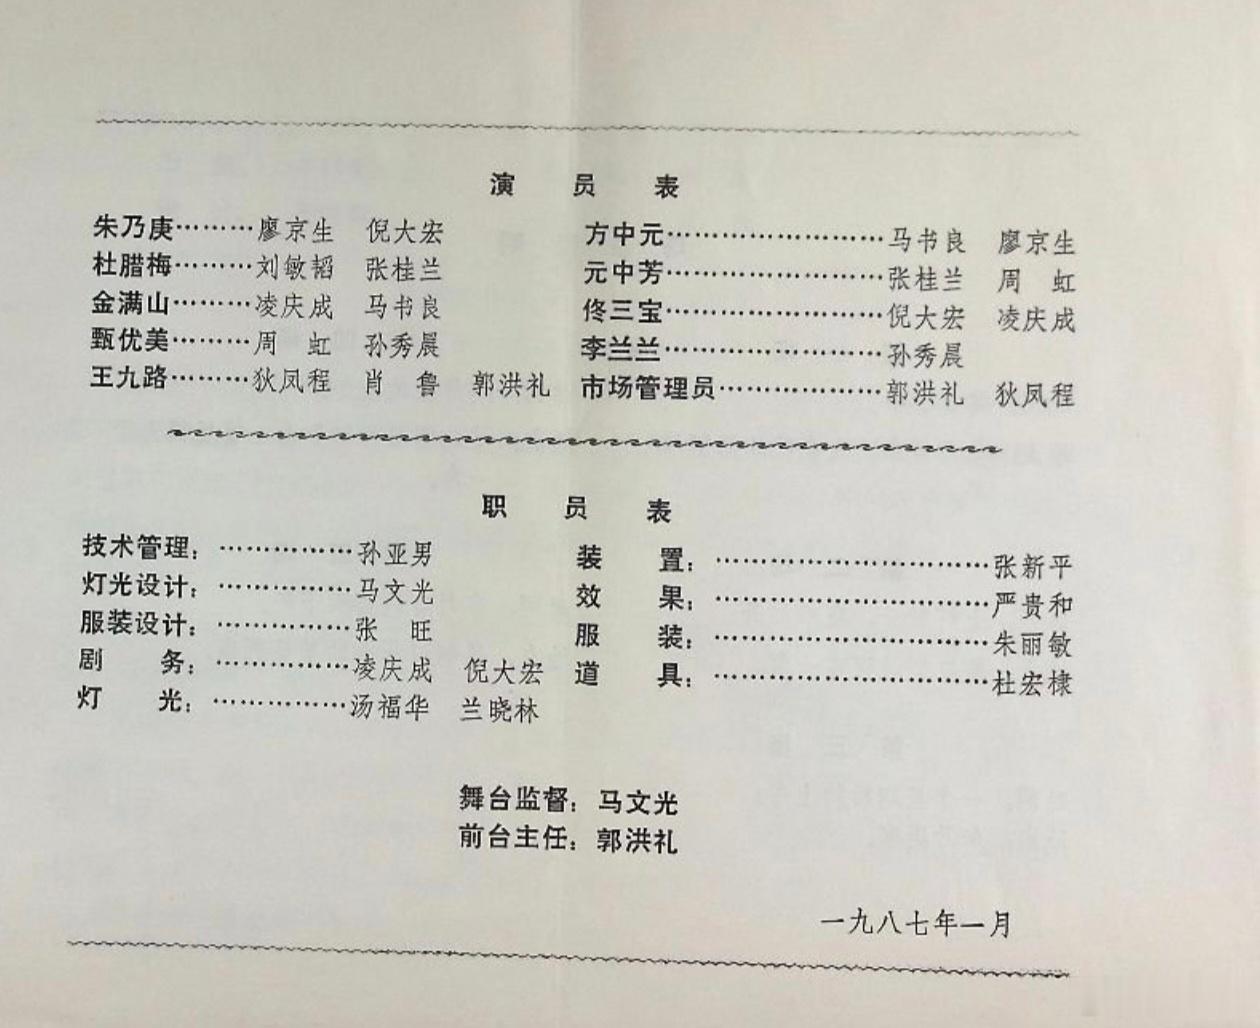 演 员 表
朱乃庚………廖京生 倪大宏 方中元……………………马书良 廖京生
杜腊梅………刘敏韬 张桂兰 元中芳……………………张桂兰 周 虹
金满山………凌庆成 马书良 佟三宝……………………倪大宏 凌庆成
甄优美………周 虹 孙秀晨 李兰兰……………………孙秀晨
王九路………狄凤程 肖 鲁 郭洪礼 市场管理员………………郭洪礼 狄凤程
职 员 表
技术管理：……………孙亚男 装 置：…………………………张新平
灯光设计：……………马文光 效 果：…………………………严贵和
服装设计：……………张 旺 服 装：…………………………朱丽敏
剧 务：……………凌庆成 倪大宏 道 具：…………………………杜宏棣
灯 光：……………汤福华 兰晓林
舞台监督：马文光
前台主任：郭洪礼
一九八七年一月